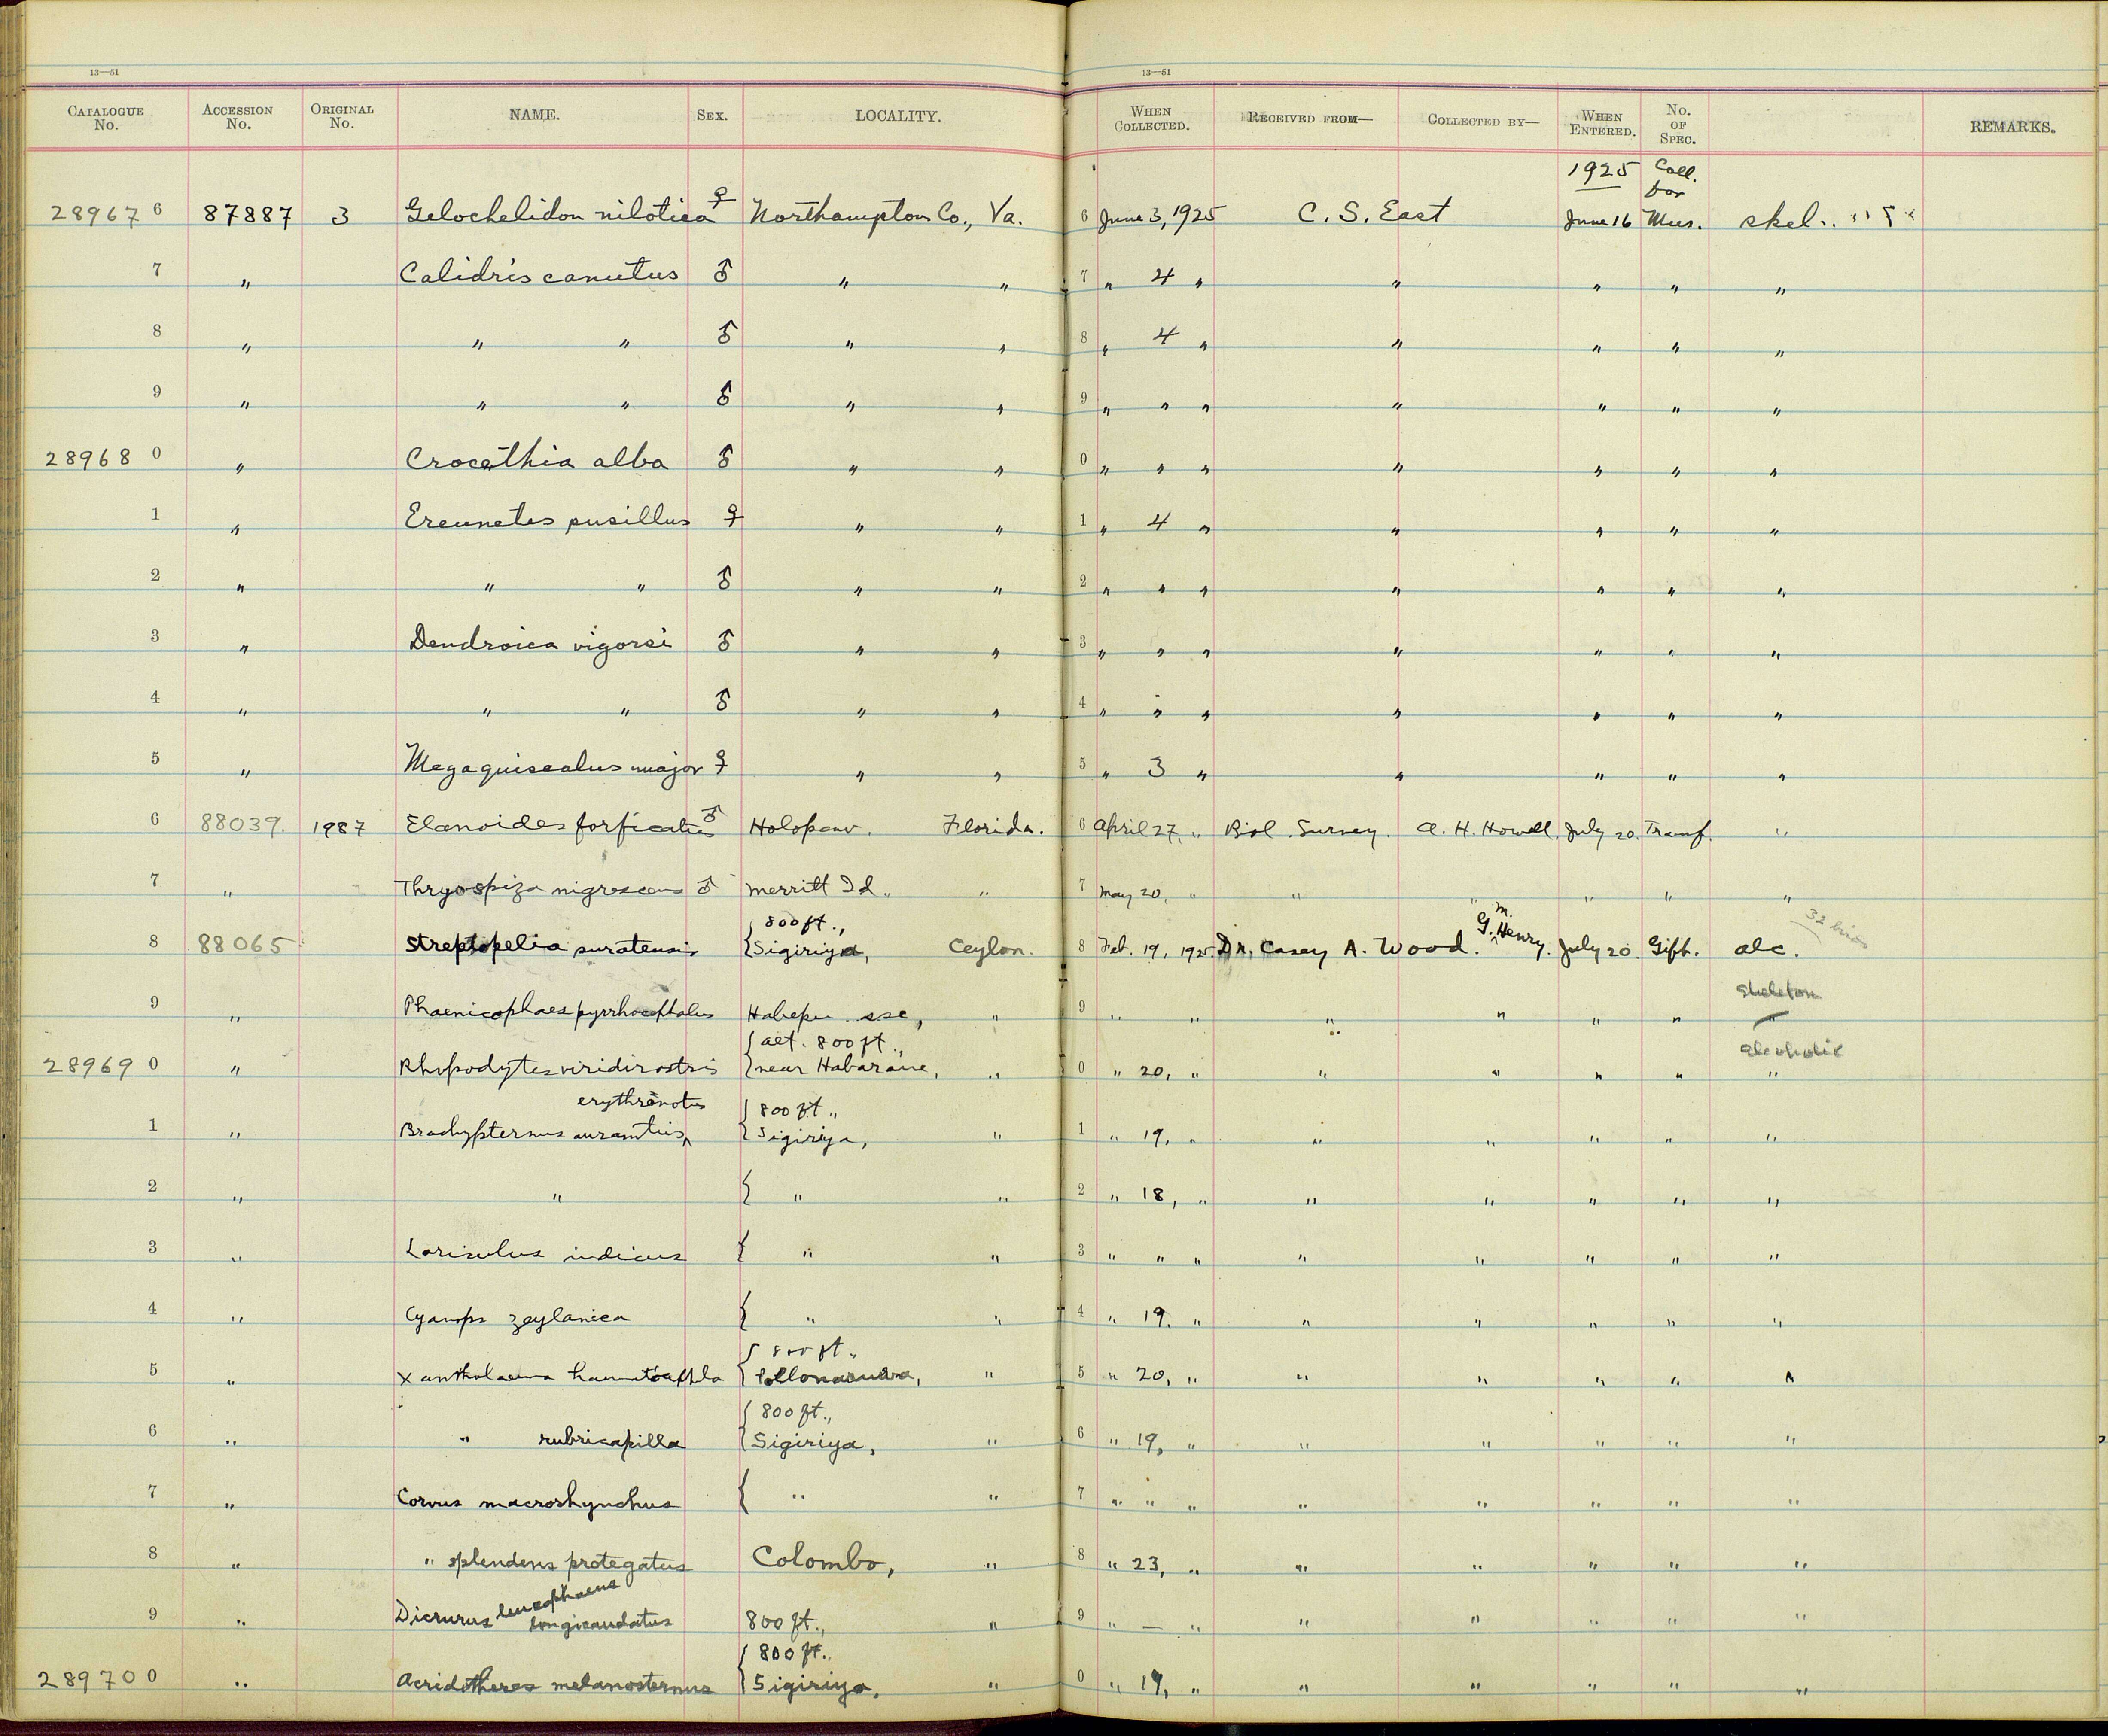 13—51 13—51
CATALOGUE No. ACCESSION No. ORIGINAL No. NAME. SEX. LOCALITY. WHEN COLLECTED. RECEIVED FROM— COLLECTED BY— WHEN ENTERED. No. OF SPEC. REMARKS.
1925 Coll. for
28967 6 87887 3 Gelochelidon nilotica ♀ Northampton Co., Va. 6 June 3, 1925 C. S. East June 16 Mus. skel.
7 " Calidris canutus ♂ " " 7 " 4 " " " " "
8 " " " ♂ " " 8 " 4 " " " " "
9 " " " ♂ " " 9 " " " " " " "
28968 0 " Crocethia alba ♂ " " 0 " " " " " " "
1 " Ereunetes pusillus ♀ " " 1 " 4 " " " " "
2 " " " ♂ " " 2 " " " " " " "
3 " Dendroica vigorsi ♂ " " 3 " " " " " " "
4 " " " ♂ " " 4 " " " " " " "
5 " Megaquiscalus major ♀ " " 5 " 3 " " " " "
6 88039. 1987 Elanoides forficatus ♂ Holopaw. Florida. 6 April 27, " Biol. Survey. A. H. Howell. July 20. Transf. "
7 " Thryospiza nigrescens ♂ Merritt Id. " 7 May 20, " " " " " "
800 ft., M. 32 birds
8 88065 Streptopelia suratensis { Sigiriya, Ceylon. 8 Feb. 19, 1925. Dr. Casey A. Wood. G. Henry. July 20. Gift. alc.
skeleton
9 " Phaenicophaes pyrrhocephalus " 9 " " " " " " "
{ alt. 800 ft., alcoholic
28969 0 " Rhopodytes viridirostris { near Habarane, " 0 " 20, " " " " " "
erythronotus { 800 ft.,
1 " Brachypternus aurantius ^ { Sigiriya, " 1 " 19, " " " " " "
2 " " { " " 2 " 18, " " " " " "
3 " Loriculus indicus { " " 3 " " " " " " " "
4 " Cyanops zeylanica { " " 4 " 19. " " " " " "
{ 800 ft.,
5 " Xantholaema haematocephala { Pollonaruwa, " 5 " 20, " " " " " "
{ 800 ft.,
6 " " rubricapilla { Sigiriya, " 6 " 19, " " " " " "
7 " Corvus macrorhynchus { " " 7 " " " " " " " "
8 " " splendens protegatus Colombo, " 8 " 23, " " " " " "
leucophaeus
9 " Dicrurus longicaudatus 800 ft., " 9 " — " " " " " "
{ 800 ft.,
28970 0 " Acridotheres melanosternus { Sigiriya, " 0 " 19, " " " " " "